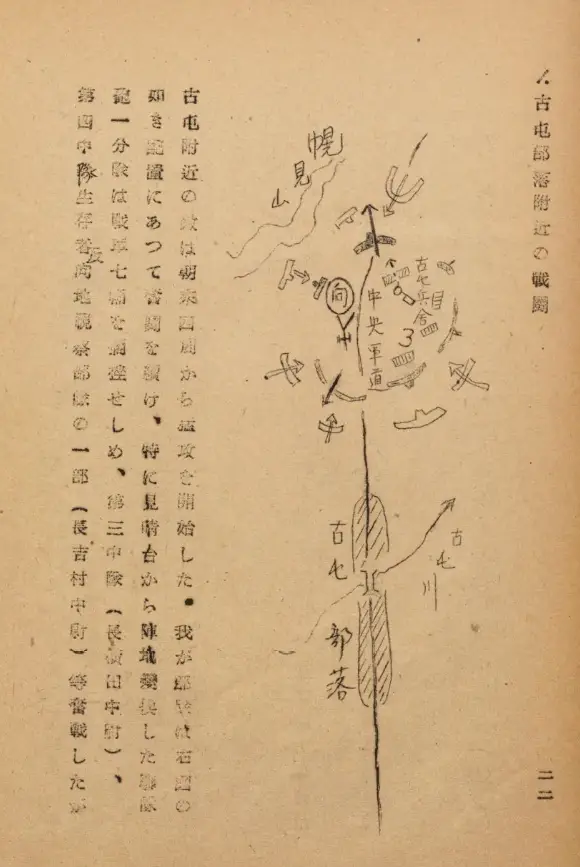 1.古屯部落附近の戦闘
幌見山
古屯兵舎
中央軍道
向
3
古屯川
古屯部落
古屯附近の は朝来四周から猛攻を開始した。我が部隊は右図の
如き配置にあつて苦闘を続け、特に見晴台から陣地変換した聯隊
砲一分隊は戦車七輛を擱挫せしめ、第三中隊(長 田中尉)、
第四中隊生存者向地視察部隊の一部(長吉村中尉)等奮戦したが
二二